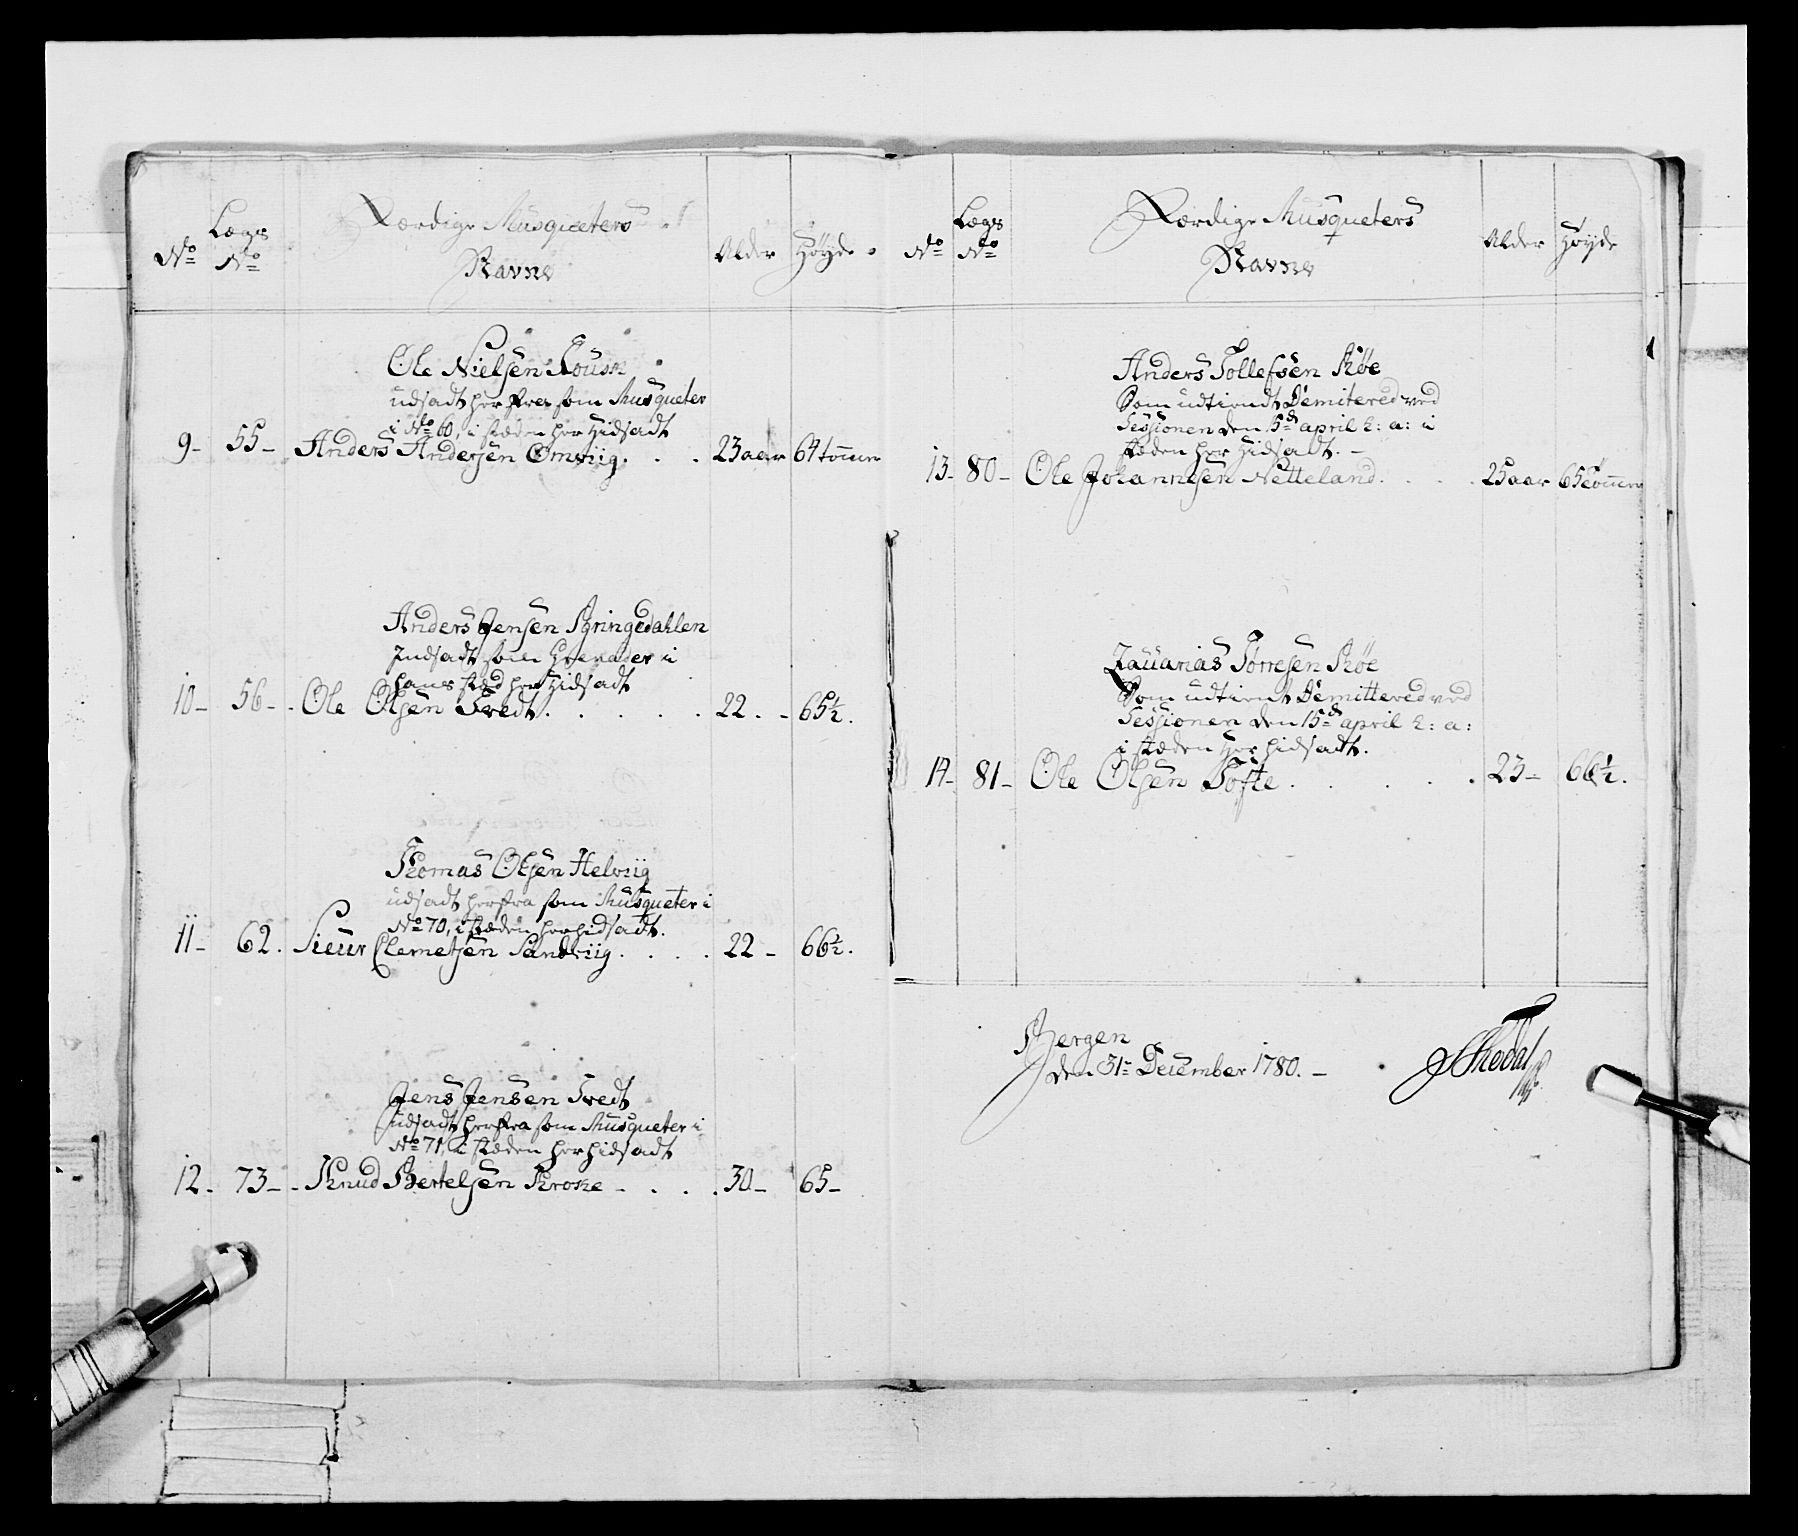 No
Lægs
No
Færdige Musqueters
Navne
Alder
Høyde
Ole Nielsen
udsadt herfra som Musqueter
i No 60, i stæden her hidsadt
9 - 55 - Anders Andersen Omviig . . . 23 aar 64 tommer
Anders Jensen Springedahlen
Indsadt som Grenader i
hans stæd her hidsadt
10 - 56 - . Ole Olsen Tvedt . . . . . 22. - 65½.
Thomas Olsen Helviig
udsadt herfra som Musqueter i
No 70, i stæden her hidsadt.
11 - 62. Siuur Clemetsen Sandviig . . . . 22 - 66½.
Jens Jensen Tvedt
udsadt herfra som Musqueter i
No 71, i stæden her hidsadt
12. 73 - - Knud Bertelsen Kroke - . . . 30 - 65 -
No
Lægs
No
Færdige Musqueters
Navne
Alder
Høyde
Anders Tollefsen Røe
Som udtiendt Demitered ved
Sessionen den 15de april h: a: i
stæden her hidsadt. -
13 - 80 - Ole Johannesen Netteland . . . . 25 aar 65 tommer
Zacharias Torresen Røe
Som udtient Demittered ved
Sessionen den 15de april h: a:
i stæden her hidsadt.
14 - 81 - Ole Olsen Tofte . . . . . 23 - 66½.
Bergen
den 31te December 1780. -